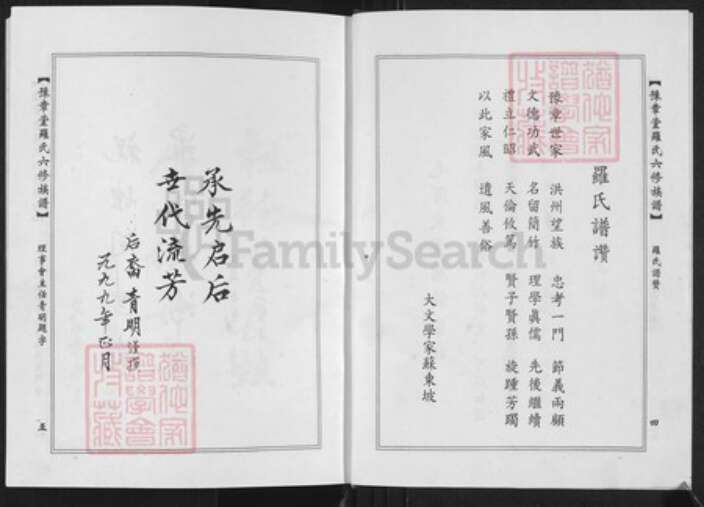 【豫章堂羅氏六修族譜】 羅氏譜贊 四
羅氏譜讚
豫章世家 洪州望族 忠考一門 節義兩顧
文德功武 名留簡竹 理學真儒 先後繼續
禮立仁昭 天倫攸篤 賢子賢孫 旋踵芳躅
以此家風 遺風善俗
大文學家蘇東坡
承先启后
世代流芳
后裔 青明 谨撰
一九九九年正月
【豫章堂羅氏六修族譜】 理事會主任青明題字 五
FamilySearch